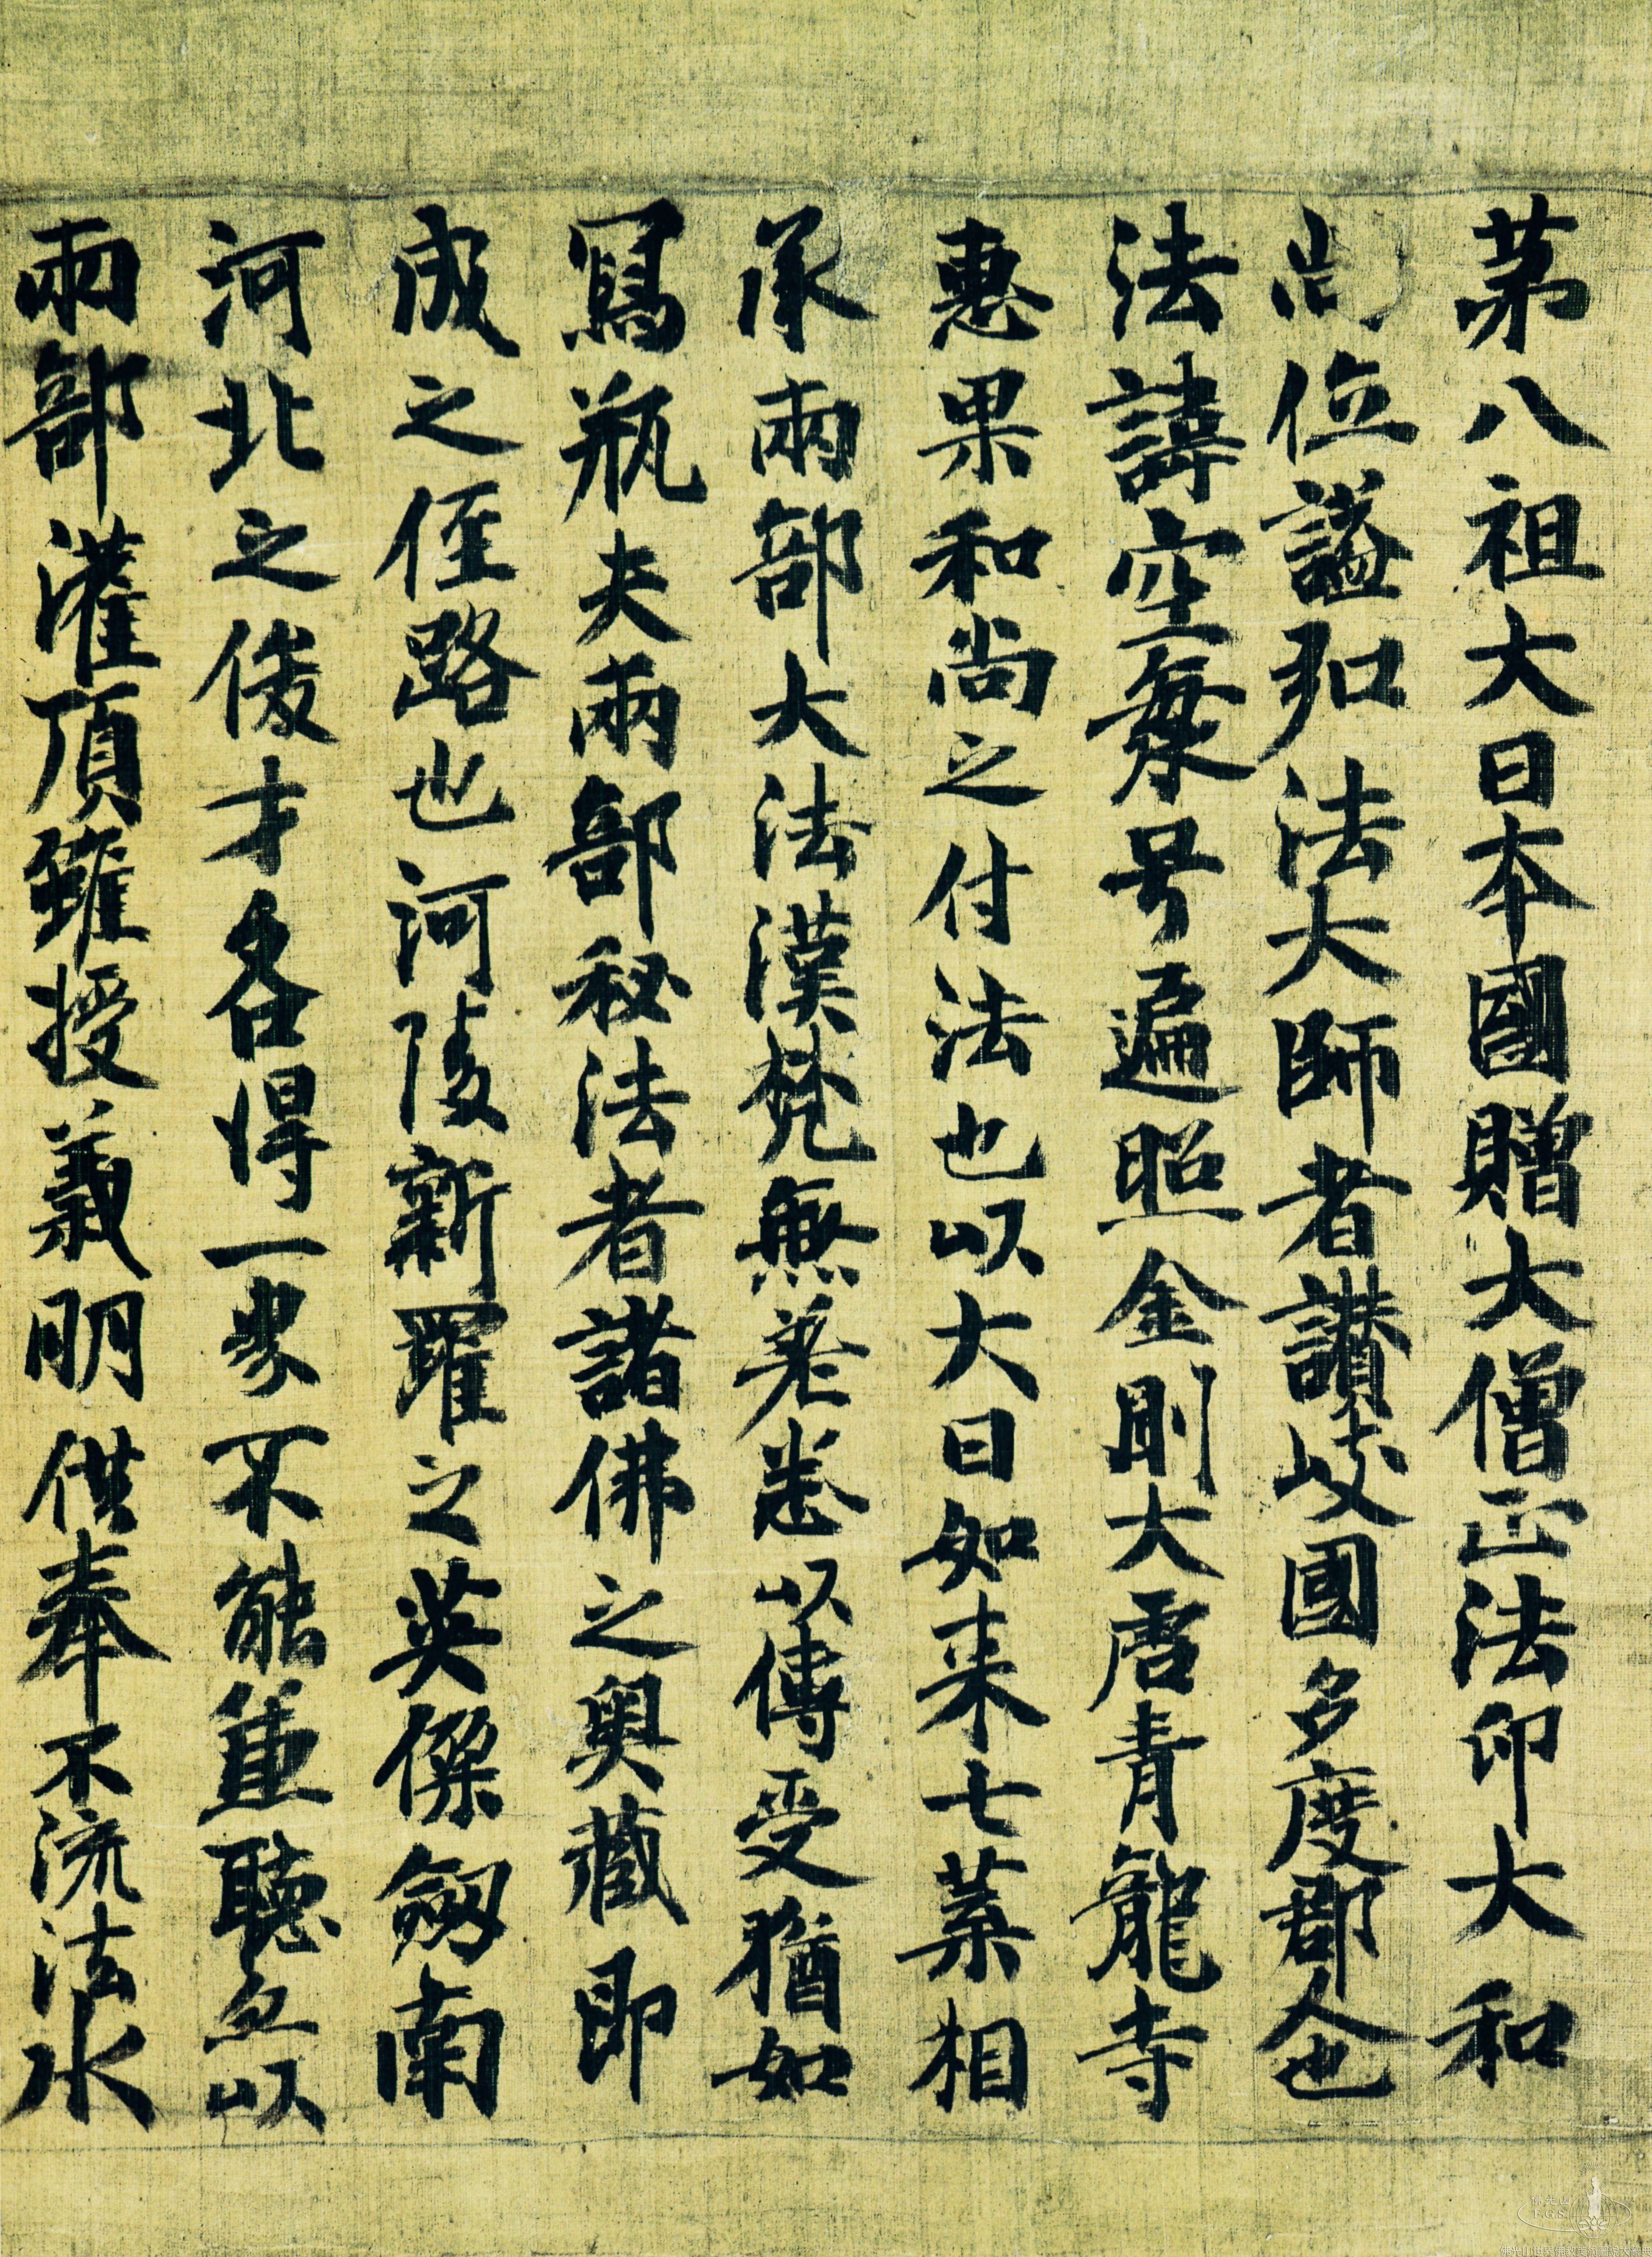 茅八祖大日本國贈大僧正法印大和
尚位謚弘法大師者讃岐國多度郡人也
法諱空海号遍照金剛大唐青龍寺
惠果和尚之付法也以大日如来七葉相
承兩部大法漢梵無差悉以傳受猶如
寫瓶夫兩部秘法者諸佛之奥藏即
成之徑路也河陵新羅之英傑劔南
河北之俊才各得一界不能兼聽並以
兩部灌頂雖授義明供奉不流法水
佛光山
F.G.S.